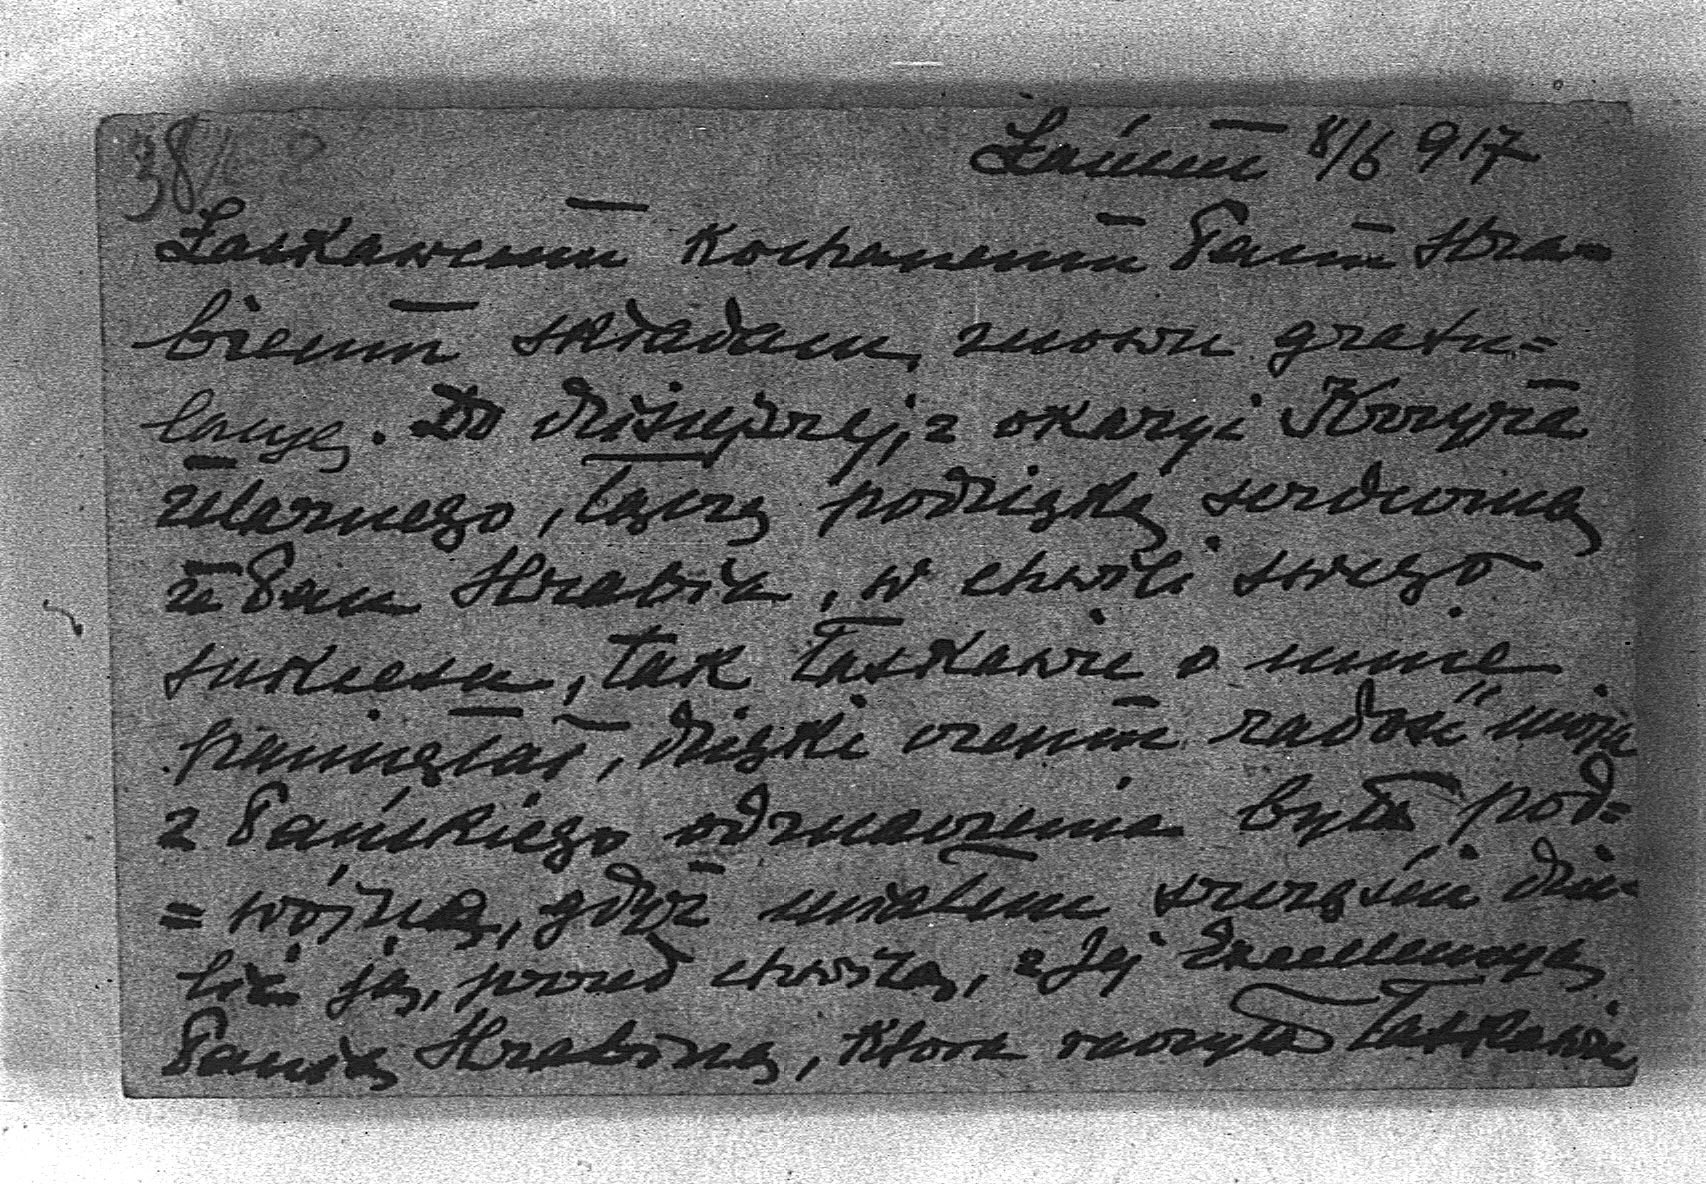 38
Łańcut 8/6 917
Łaskawemu Kochanemu Panu Hra=
biemu składam znowu gratu=
lacyę. Do dzisiejszej, z okazyi Krzyża
żelaznego, łączę podziękę serdeczną
że Pan Hrabia, w chwili swego
sukcesu, tak łaskawie o mnie
pamiętał, dzięki czemu radość moja
z Pańskiego odznaczenia była pod=
=wójną, gdyż miałem szczęście dzie=
lić ją, przed chwilą, z Jej Excellencyą
Panią Hrabiną, która raczyła łaskawie